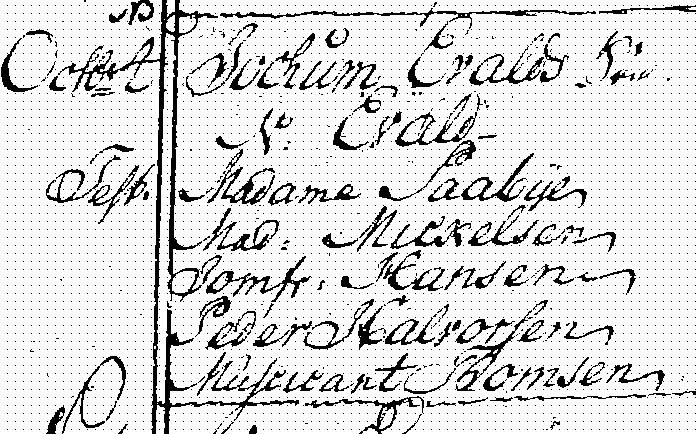 Octbr Jochum Evalds
N. Evald
Test. Madame Saabÿe
Mad. Mickelsen
Jomfr. Hansen
Peder Halvorsen
Musicant Thomsen